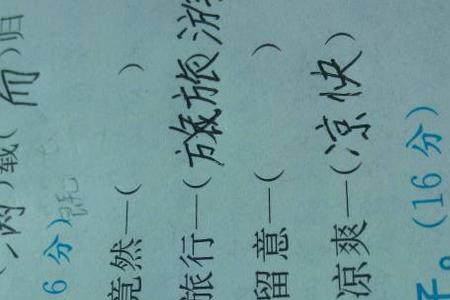 (满)载(而)归
6分)
竟然—( )
旅行—(旅旅游
留意—( )
凉爽—(凉快)
。(16分)